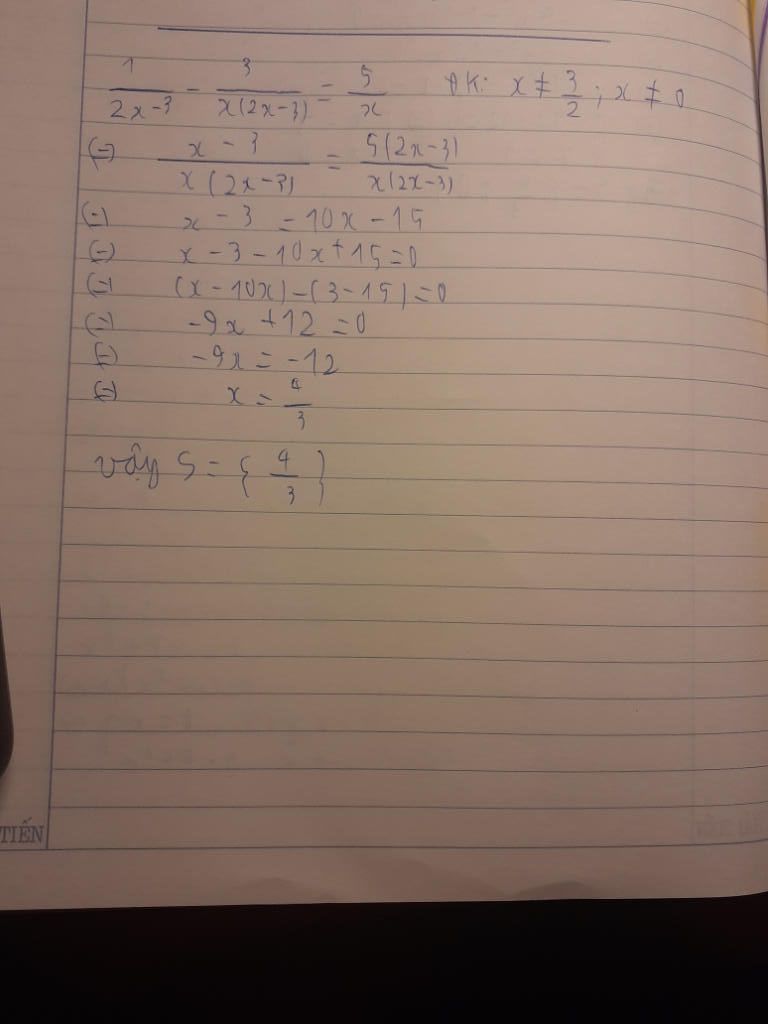 1/(2x-3) - 3/(x(2x-3)) = 5/x ĐK: x ≠ 3/2 ; x ≠ 0
(=) (x-3)/(x(2x-3)) = 5(2x-3)/(x(2x-3))
(=) x - 3 = 10x - 15
(=) x - 3 - 10x + 15 = 0
(=) (x - 10x) - (3 - 15) = 0
(=) -9x + 12 = 0
(=) -9x = -12
(=) x = 4/3
vậy S = { 4/3 }
TIẾN